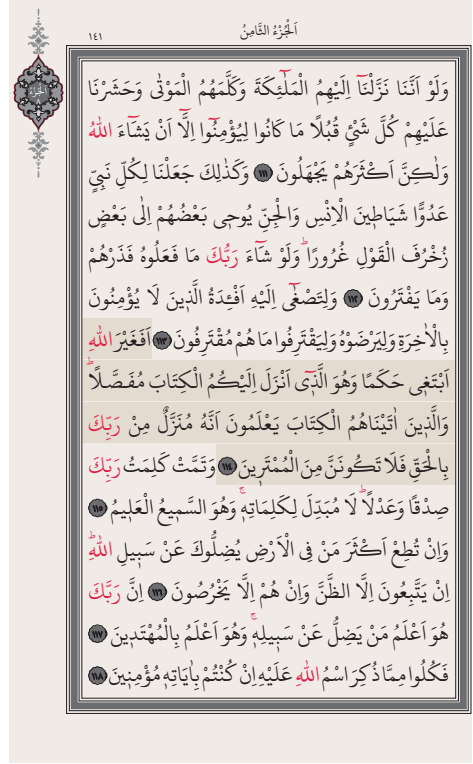 اَلْجُزْءُ الثَّامِنُ
١٤١
اَلْجُزْءُ
٨
وَلَوْ اَنَّنَا نَزَّلْنَٓا اِلَيْهِمُ الْمَلٰٓئِكَةَ وَكَلَّمَهُمُ الْمَوْتٰى وَحَشَرْنَا
عَلَيْهِمْ كُلَّ شَيْءٍ قُبُلًا مَا كَانُوا لِيُؤْمِنُٓوا اِلَّٓا اَنْ يَشَٓاءَ اللّٰهُ
وَلٰكِنَّ اَكْثَرَهُمْ يَجْهَلُونَ ١١١ وَكَذٰلِكَ جَعَلْنَا لِكُلِّ نَبِيٍّ
عَدُوًّا شَيَاط۪ينَ الْاِنْسِ وَالْجِنِّ يُوح۪ي بَعْضُهُمْ اِلٰى بَعْضٍ
زُخْرُفَ الْقَوْلِ غُرُورًاۜ وَلَوْ شَٓاءَ رَبُّكَ مَا فَعَلُوهُ فَذَرْهُمْ
وَمَا يَفْتَرُونَ ١١٢ وَلِتَصْغٰٓى اِلَيْهِ اَفْـِٔدَةُ الَّذ۪ينَ لَا يُؤْمِنُونَ
بِالْاٰخِرَةِ وَلِيَرْضَوْهُ وَلِيَقْتَرِفُوا مَا هُمْ مُقْتَرِفُونَ ١١٣ اَفَغَيْرَ اللّٰهِ
اَبْتَغ۪ي حَكَمًا وَهُوَ الَّذ۪ٓي اَنْزَلَ اِلَيْكُمُ الْكِتَابَ مُفَصَّلًاۜ
وَالَّذ۪ينَ اٰتَيْنَاهُمُ الْكِتَابَ يَعْلَمُونَ اَنَّهُ مُنَزَّلٌ مِنْ رَبِّكَ
بِالْحَقِّ فَلَا تَكُونَنَّ مِنَ الْمُمْتَر۪ينَ ١١٤ وَتَمَّتْ كَلِمَتُ رَبِّكَ
صِدْقًا وَعَدْلًاۜ لَا مُبَدِّلَ لِكَلِمَاتِه۪ۚ وَهُوَ السَّم۪يعُ الْعَل۪يمُ ١١٥
وَاِنْ تُطِعْ اَكْثَرَ مَنْ فِي الْاَرْضِ يُضِلُّوكَ عَنْ سَب۪يلِ اللّٰهِۜ
اِنْ يَتَّبِعُونَ اِلَّا الظَّنَّ وَاِنْ هُمْ اِلَّا يَخْرُصُونَ ١١٦ اِنَّ رَبَّكَ
هُوَ اَعْلَمُ مَنْ يَضِلُّ عَنْ سَب۪يلِه۪ۚ وَهُوَ اَعْلَمُ بِالْمُهْتَد۪ينَ ١١٧
فَكُلُوا مِمَّا ذُكِرَ اسْمُ اللّٰهِ عَلَيْهِ اِنْ كُنْتُمْ بِاٰيَاتِه۪ مُؤْمِن۪ينَ ١١٨